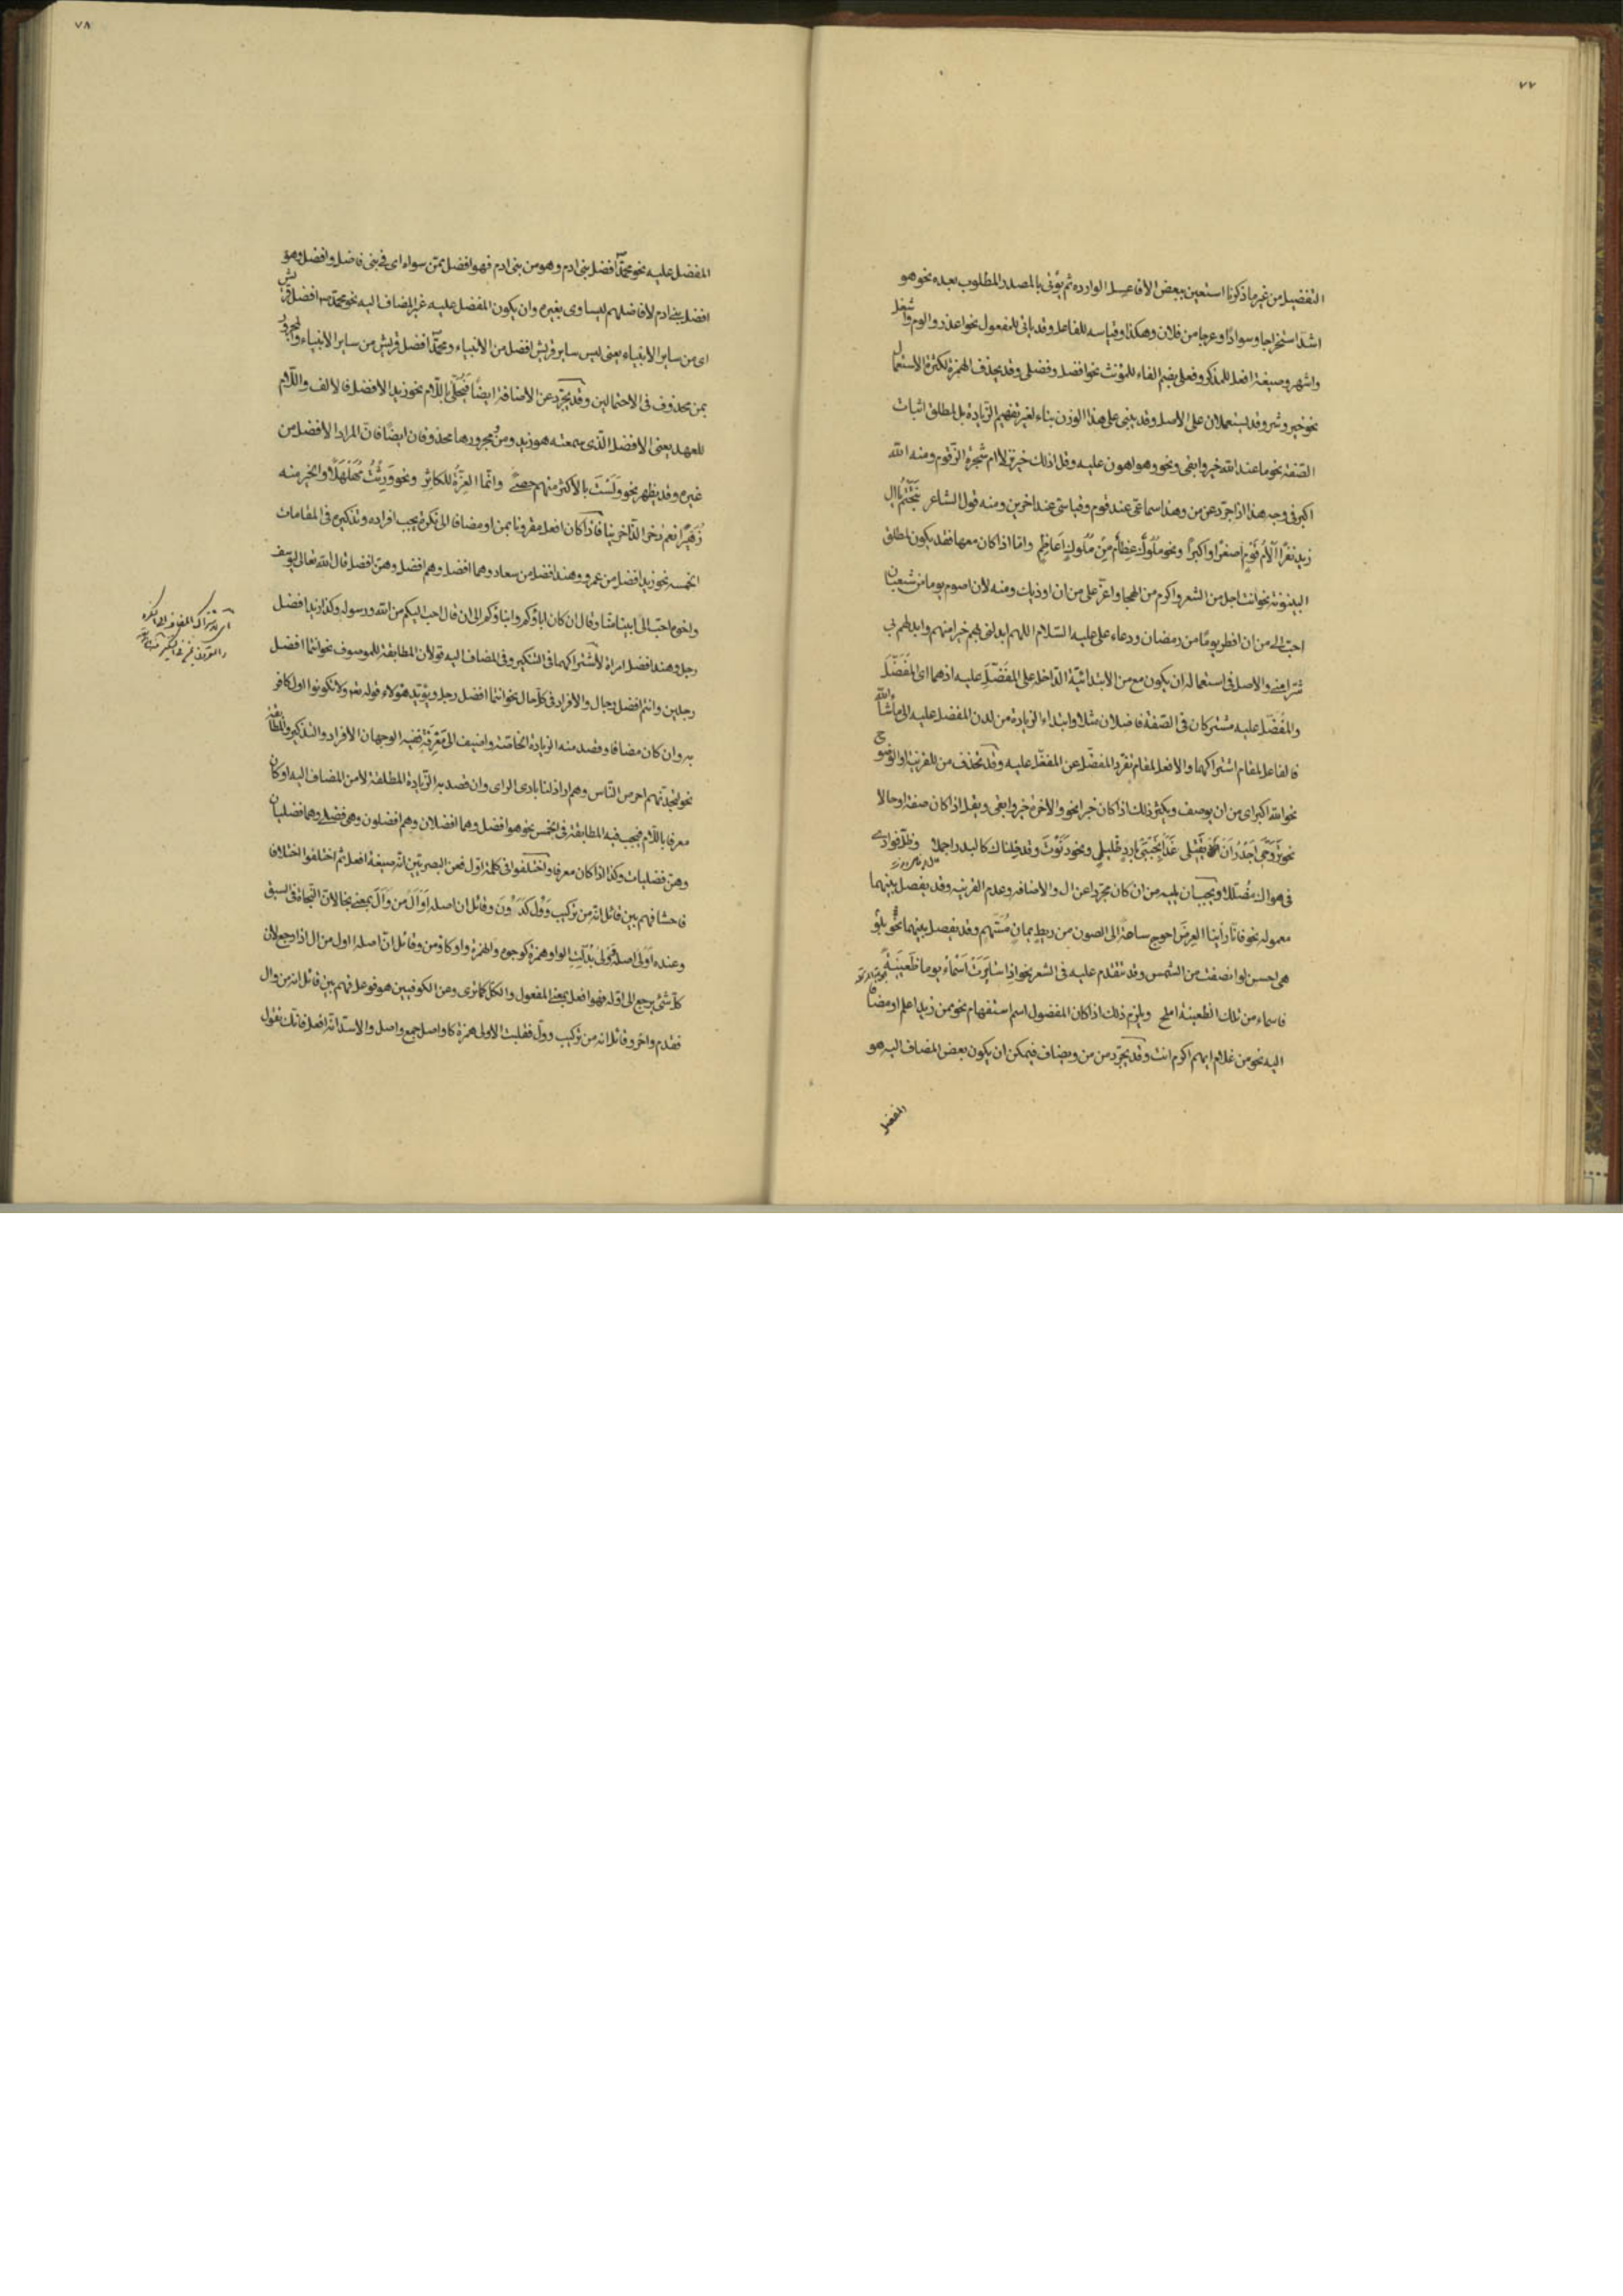 ٧٧
التفضيل من غير ما ذكرنا استعين ببعض الافاعيل الوارده ثم يؤتى بالمصدر المطلوب بعده نحو هو
اشد استخراجا وسوادًا وعرجا من فلان وهكذا وقياسه للفاعل وقد ياتى للمفعول نحو اعذر والوم واشغل
واشهر وصيغة افعل للمذكر وفعلى بضم الفاء للمؤنث نحو افضل وفضلى وقد يحذف الهمزة لكثرة الاستعمال
نحو خير وشر وقد يستعملان على الاصل وقد يبنى على هذا الوزن بناء لغير تفهيم الزيادة بل لمطلق اثبات
الصفة نحو ما عند الله خير وابقى ونحو وهو اهون عليه وقل اذلك خير نزلا ام شجرة الزقوم ومنه الله
اكبر فى وجه هذا اذا جرد عن من وهذا سماعى عند قوم وقياسى عند اخرين ومنه قول الشاعر قبحتم يا ال
زيد نفرًا الام قوم اصغرًا واكبرًا ونحو ملوك عظام من ملوك اعاظم واما اذا كان معها فقد يكون لمطلق
البينونة نحو انت اجل من الشعر واكرم من الهجا واعز على من ان اوذيك ومنه لان اصوم يوما من شعبان
احب الى من ان افطر يومًا من رمضان ودعاء على عليه السلام اللهم ابدلنى بهم خيرا منهم وابدلهم بى
شرا منى والاصل فى استعماله ان يكون مع من الابتدائية الداخلة على المفضل عليه اذ هما اى المفضل
والمفضل عليه مشتركان فى الصفة فاضلان مثلا وابتداء الزيادة من لدن المفضل عليه الى ما شاء الله
فالفاعل لمقام اشتراكهما والافعل لمقام تفرد المفضل عن المفضل عليه وقد تحذف من للقرينة والوضوح
نحو الله اكبر اى من ان يوصف ويكثر ذلك اذا كان خبرا نحو والاخرة خير وابقى ويقل اذا كان صفة او حالا
نحو تروحى اجدر ان تقيلى غدًا بجنبى بارد ظليل ونحو دنوت وقد خلناك كالبدر اجملا وظل فوادى
فى هواك مضللا ويجب ان يليه من ان كان مجردا عن ال والاضافه وعدم القرينه وقد يفصل بينهما
معموله نحو فانا راينا العرض احوج ساعة الى الصون من ريط يمان مسهم وقد يفصل بينهما نحو بلو
هى احسن لو انصفت من الشمس وقد تتقدم عليه فى الشعر نحو اذا سايرت اسماء يوما ظعينة
فاسماء من تلك الظعينة املح ويلزم ذلك اذا كان المفضول اسم استفهام نحو ممن زيد اعلم او مضافا
اليه نحو من غلام ايهم اكرم انت وقد يجرد من من ويضاف فيمكن ان يكون بعض المضاف اليه هو
المفضل
٧٨
المفضل عليه نحو محمد افضل بنى ادم وهو من بنى ادم فهو افضل ممن سواه اى فى بنى فاضل وافضل وهو
افضل بنى ادم لافاضلهم ليساوى بغيره وان يكون المفضل عليه غير المضاف اليه نحو محمد افضل قريش
اى من ساير الانبياء يعنى ليس ساير قريش افضل من الانبياء ومحمد افضل قريش من ساير الانبياء والمجرور
بمن محذوف فى الاحتمالين وقد يجرد عن الاضافة ايضًا فيحلى باللام نحو زيد الافضل فالالف واللام
للعهد يعنى الافضل الذى سمعته هو زيد ومن ومجرورها محذوفان ايضًا فان المراد الافضل من
غيره وقد يظهر نحو ولست بالاكثر منهم حصى وانما العزة للكاثر ونحو ورثت مهلهلا والخير منه
زهيرًا نعم ذخر الذاخرينا فاذا كان افعل مقرونا بمن او مضافا الى نكرة يجب افراده وتذكيره فى المقامات
الخمسه نحو زيد افضل من عمرو وهند افضل من سعاد وهما افضل وهم افضل وهن افضل قال الله تعالى ليوسف
واخوه احب الى ابينا منا وقال ان كان اباؤكم وابناؤكم الى ان قال احب اليكم من الله ورسوله وكذا زيد افضل
رجل وهند افضل امراة لاشتراكهما فى التنكير وفى المضاف اليه قولان المطابقة للموصوف نحو انتما افضل
رجلين وانتم افضل رجال والافراد فى كل حال نحو انتما افضل رجل ويؤيد هؤلاء قوله تعالى ولا تكونوا اول كافر
به وان كان مضافا وقصد منه الزيادة الخاصة واضيف الى معرفة ففيه الوجهان الافراد والتذكير والمطابقة
نحو لتجدنهم احرص الناس وهم اراذلنا بادى الراى وان قصد به الزيادة المطلقة لا من المضاف اليه او كان
معرفا باللام فيجب فيه المطابقة فى الخمس نحو هو افضل وهما افضلان وهم افضلون وهى فضلى وهما فضليان
وهن فضليات وكذا اذا كان معرفا واختلفوا فى كلمة اول فعن البصريين انه صيغة افعل ثم اختلفوا اختلافا
فاحشا فهم بين قائل انه من تركيب وول كددون وقائل ان اصله اوأل من وأل بمعنى نجا لان النجاة فى السبق
وعنده اولى اصله وولى بدلت الواو همزة كوجوه والهمزة واوا كاومن وقائل ان اصله ااول من ال اذا رجع لان
كل شئ يرجع الى اوله فهو افعل بمعنى المفعول والكل كما ترى وعن الكوفيين هو فوعل فهم بين قائل انه من وال
فقدم واخر وقائل انه من تركيب وول فقلبت الاولى همزة كاواصل جمع واصل والاسد انه افعل فانك تقول